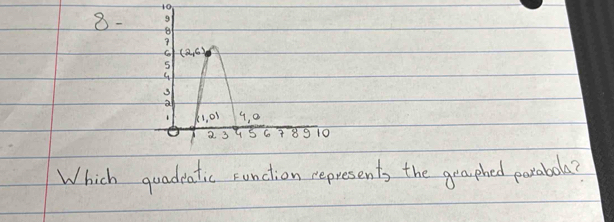 8-
10
9
8
7
6 (2,6)
5
4
3
2
1 (1,0) 4,0
0 1 2 3 4 5 6 7 8 9 10
Which quadratic function represents the graphed parabola?